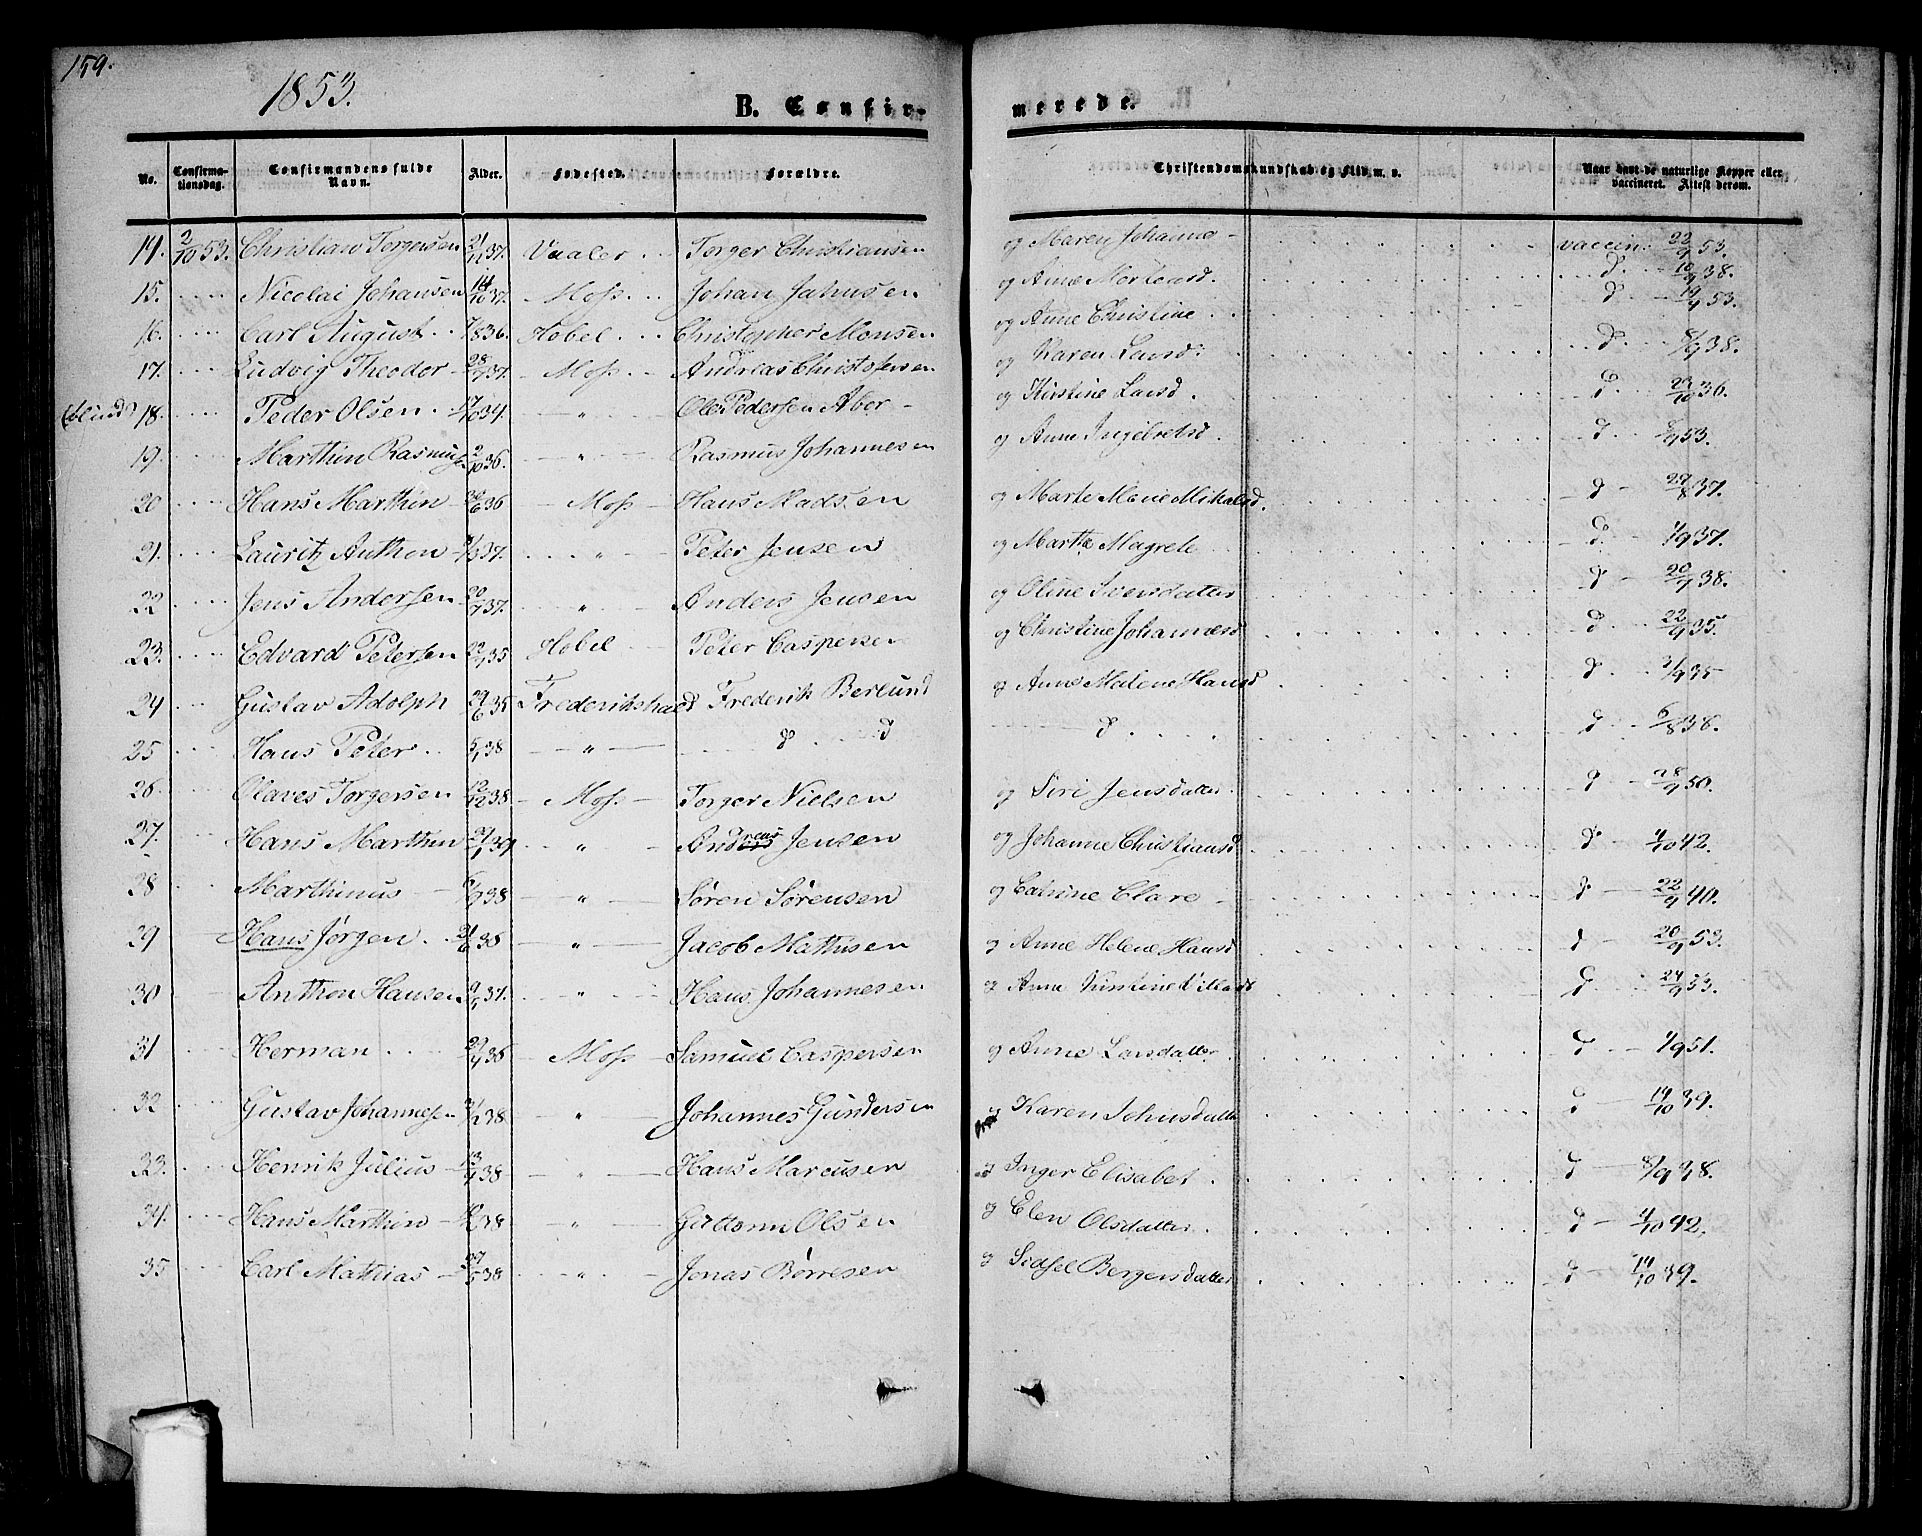 159.
1853.
B. Confir-
merede.
No.
Confirma-
tionsdag.
Confirmandens fulde
Navn.
Alder.
Fødested.
Forældre.
Christendomskundskab og Flid m. v.
Naar havt de naturlige Kopper eller
vaccineret. Attest derom.
14. 2/10 53. Christian Torgersen 21/11 37. Vaaler Torger Christiansen og Maren Johanne vaccin: 22/9 53.
15. Nicolai Johansen 14/10 37. Moss Johan Jahnsen og Anne Mortensd. d 10/9 38.
16. Carl August 7/8 36. Hobel Christopher Monsen og Anne Christine d 19/9 53.
17. Ludvig Theodor 28/9 37. Moss Andreas Christofersen og Karen Larsd: d 8/9 38.
(blind) 18. Peder Olsen 17/10 34. " Ole Pedersen Aber og Kirstine Larsd. d 22/10 36.
19. Marthin Rasmusen 2/10 36. " Rasmus Johannesen og Anne Ingebretsd. d 8/9 53.
20 Hans Marthin 20/6 36 Moss Hans Madsen og Marte Marie Mikalsd. d 29/8 37.
21. Lauritz Anthon 2/3 37. " Peter Jensen og Marthe Magrete d 1/9 37.
22 Jens Andersen 20/7 37. " Anders Jensen og Oline Svensdatter d 20/7 38.
23. Edvard Petersen 22/7 35 Hobel Peter Caspersen og Christine Johannesd d 22/9 35.
24 Gustav Adolph 29/6 35 Frederikshald Frederik Berlund og Anne Malene Hansd d 3/9 35
25 Hans Peter 5/1 38 " d d d d 6/8 38.
26. Olaves Torgersen 12/12 38 Moss Torger Nielsen og Siri Jensdatter. d 28/9 50.
27. Hans Marthin 21/1 39 " Andreas Jensen og Johanne Christiansd d 4/10 42.
28 Marthinus 6/9 38 " Søren Sørensen og Catrine Clare d 22/9 40.
29 Hans Jørgen 21/6 38 " Jacob Mathisen og Anne Helene Hansd d 20/9 53.
30 Anthon Hansen 9/1 37. " Hans Johannesen og Anne Kirstine d 24/9 53.
31 Herman 29/9 36 Moss Samuel Caspersen og Anne Larsdatter. d 1/9 51.
32 Gustav Johannesen 31/12 38 " Johannes Gundersen og Karen Johnsdatter d 14/10 39.
33. Henrik Julius 13/7 38 " Hans Marcusen og Inger Elisabet d 8/9 38.
34. Hans Marthin 38 " Guttorm Olsen og Elen Olsdatter. d 4/10 42.
35 Carl Mathias 29/5 38 " Jonas Børresen og Sidsel Bergersdatter d 14/10 39.